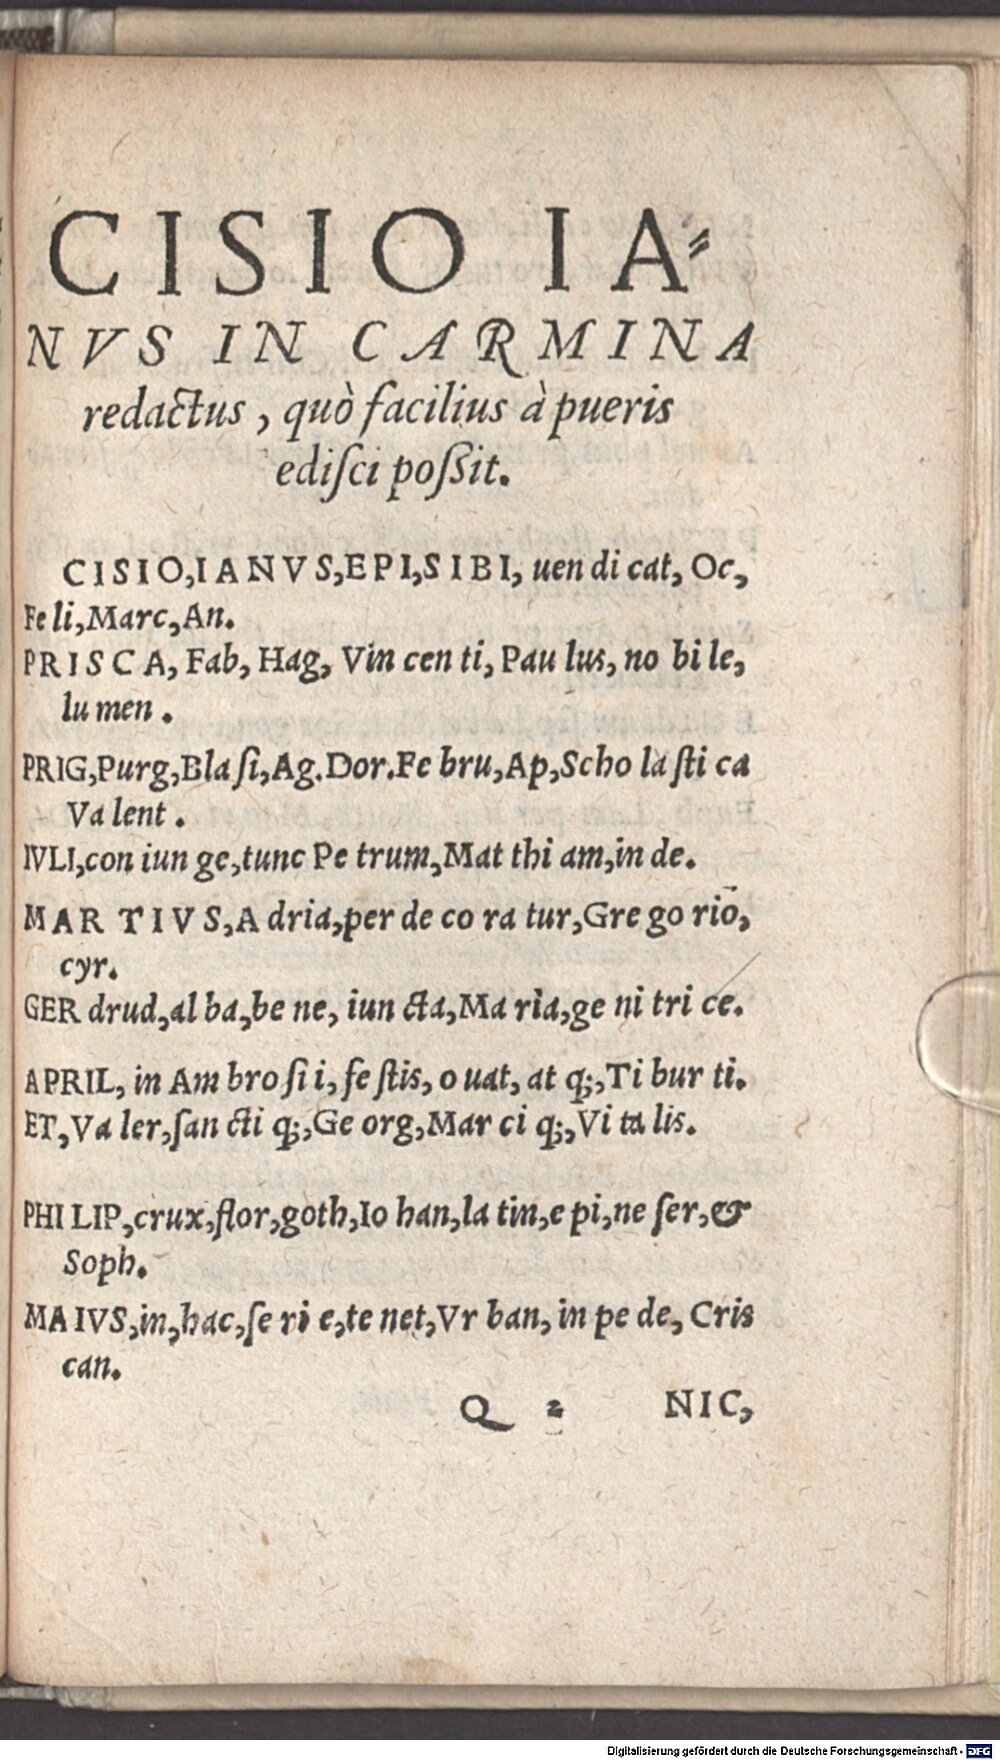 CISIO IA⸗
NVS IN CARMINA
redactus, quò facilius à pueris
ediſci poſſit.
CISIO,IANVS,EPI,SIBI, uen di cat, Oc,
Fe li,Marc,An.
PRISCA, Fab, Hag, Vin cen ti, Pau lus, no bi le,
lu men.
PRIG,Purg,Bla ſi,Ag.Dor.Fe bru,Ap,Scho la ſti ca
Va lent.
IVLI,con iun ge,tunc Pe trum,Mat thi am,in de.
MAR TIVS,A dria,per de co ra tur,Gre go rio,
cyr.
GER drud,al ba,be ne, iun cta,Ma ria,ge ni tri ce.
APRIL, in Am bro ſi i, fe ſtis, o uat, at q;,Ti bur ti.
ET,Va ler,ſan cti q;,Ge org,Mar ci q;,Vi ta lis.
PHI LIP,crux,flor,goth,Io han,la tin,e pi,ne ſer,&
Soph.
MA IVS,in,hac,ſe ri e,te net,Vr ban, in pe de, Cris
can.
Q 2 NIC,
Digitalisierung gefördert durch die Deutsche Forschungsgemeinschaft - DFG